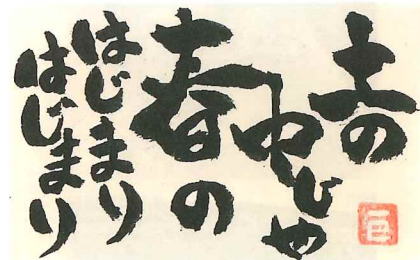 土の
中じゃ
春の
はじまり
はじまり